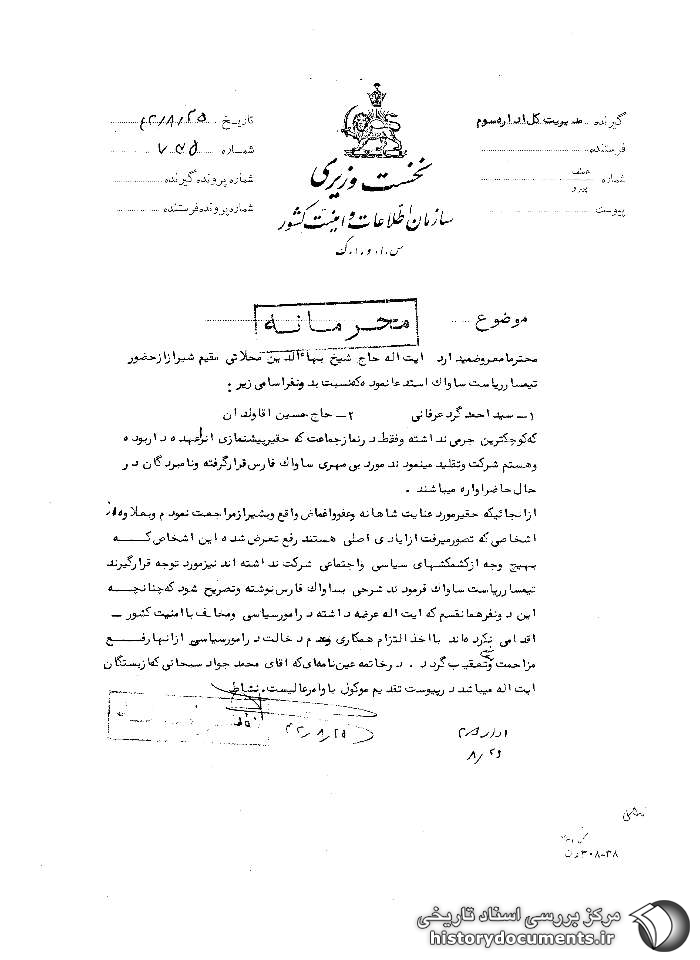 گیرنده مدیریت کل اداره سوم
فرستنده
شماره عطف پیرو
پیوست
نخست وزیری
سازمان اطلاعات و امنیت کشور
س.ا.و.ا.ک
تاریخ ۴۲/۸/۲۵
شماره
شماره پرونده گیرنده
شماره پرونده فرستنده
موضوع
محرمانه
محترما معروضمیدارد ایت اله حاج شیخ بهاءالدین محلاتی مقیم شیراز از حضور
تیمسار ریاست ساواک استدعا نموده که نسبت بدو نفر اسامی زیر :
۱ـ سید احمد گرد عرفانی ۲ـ حاج حسین اقاوندان
که کوچکترین جرمی نداشته وفقط در نماز جماعت که حقیر پیشنمازی انرا عهده دار بوده
وهستم شرکت وتقلید مینمودند مورد بی مهری ساواک فارس قرار گرفته ونامبردگان در
حال حاضر اواره میباشند .
از انجائیکه حقیر مورد عنایت شاهانه وعفو واغماض واقع وبشیراز مراجعت نمودم وبعلاوه از
اشخاصی که تصور میرفت از ایادی اصلی هستند رفع تعرض شده این اشخاص کــه
بهیچ وجه از کشمکشهای سیاسی واجتماعی شرکت نداشته اند نیز مورد توجه قرار گیرند
تیمسار ریاست ساواک فرمودند شرحی بساواک فارس نوشته وتصریح شود که چنانچــه
این دو نفر همانقسم که ایت اله عرضه داشته در امور سیاسی ومخالف با امنیت کشور ـ
اقدامی نکرده اند با اخذ التزام همکاری وعدم دخالت در امور سیاسی از انها رفــع
مزاحمت وتعقیب گردد . در خاتمه عین نامه ای که اقای محمد جواد سبحانی که از بستگان
ایت اله میباشد در پیوست تقدیم موکول باوامر عالیست . نشاط
۴۲/۸/۲۵
۸/۲۹
۳۰۸-۳۸
مرکز بررسی اسناد تاریخی
historydocuments.ir